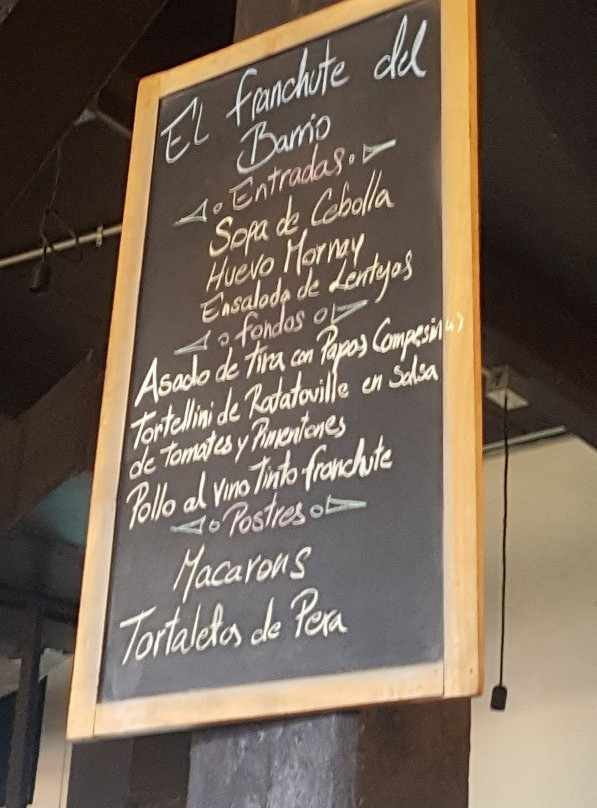 El franchute del
Barrio
Entradas
Sopa de Cebolla
Huevo Mornay
Ensalada de Lentejas
fondos
Asado de Tira con Papas Campesinas
Tortellini de Ratatoville en Salsa
de Tomates y Pimentones
Pollo al vino Tinto franchute
Postres
Macarons
Tortaletas de Pera